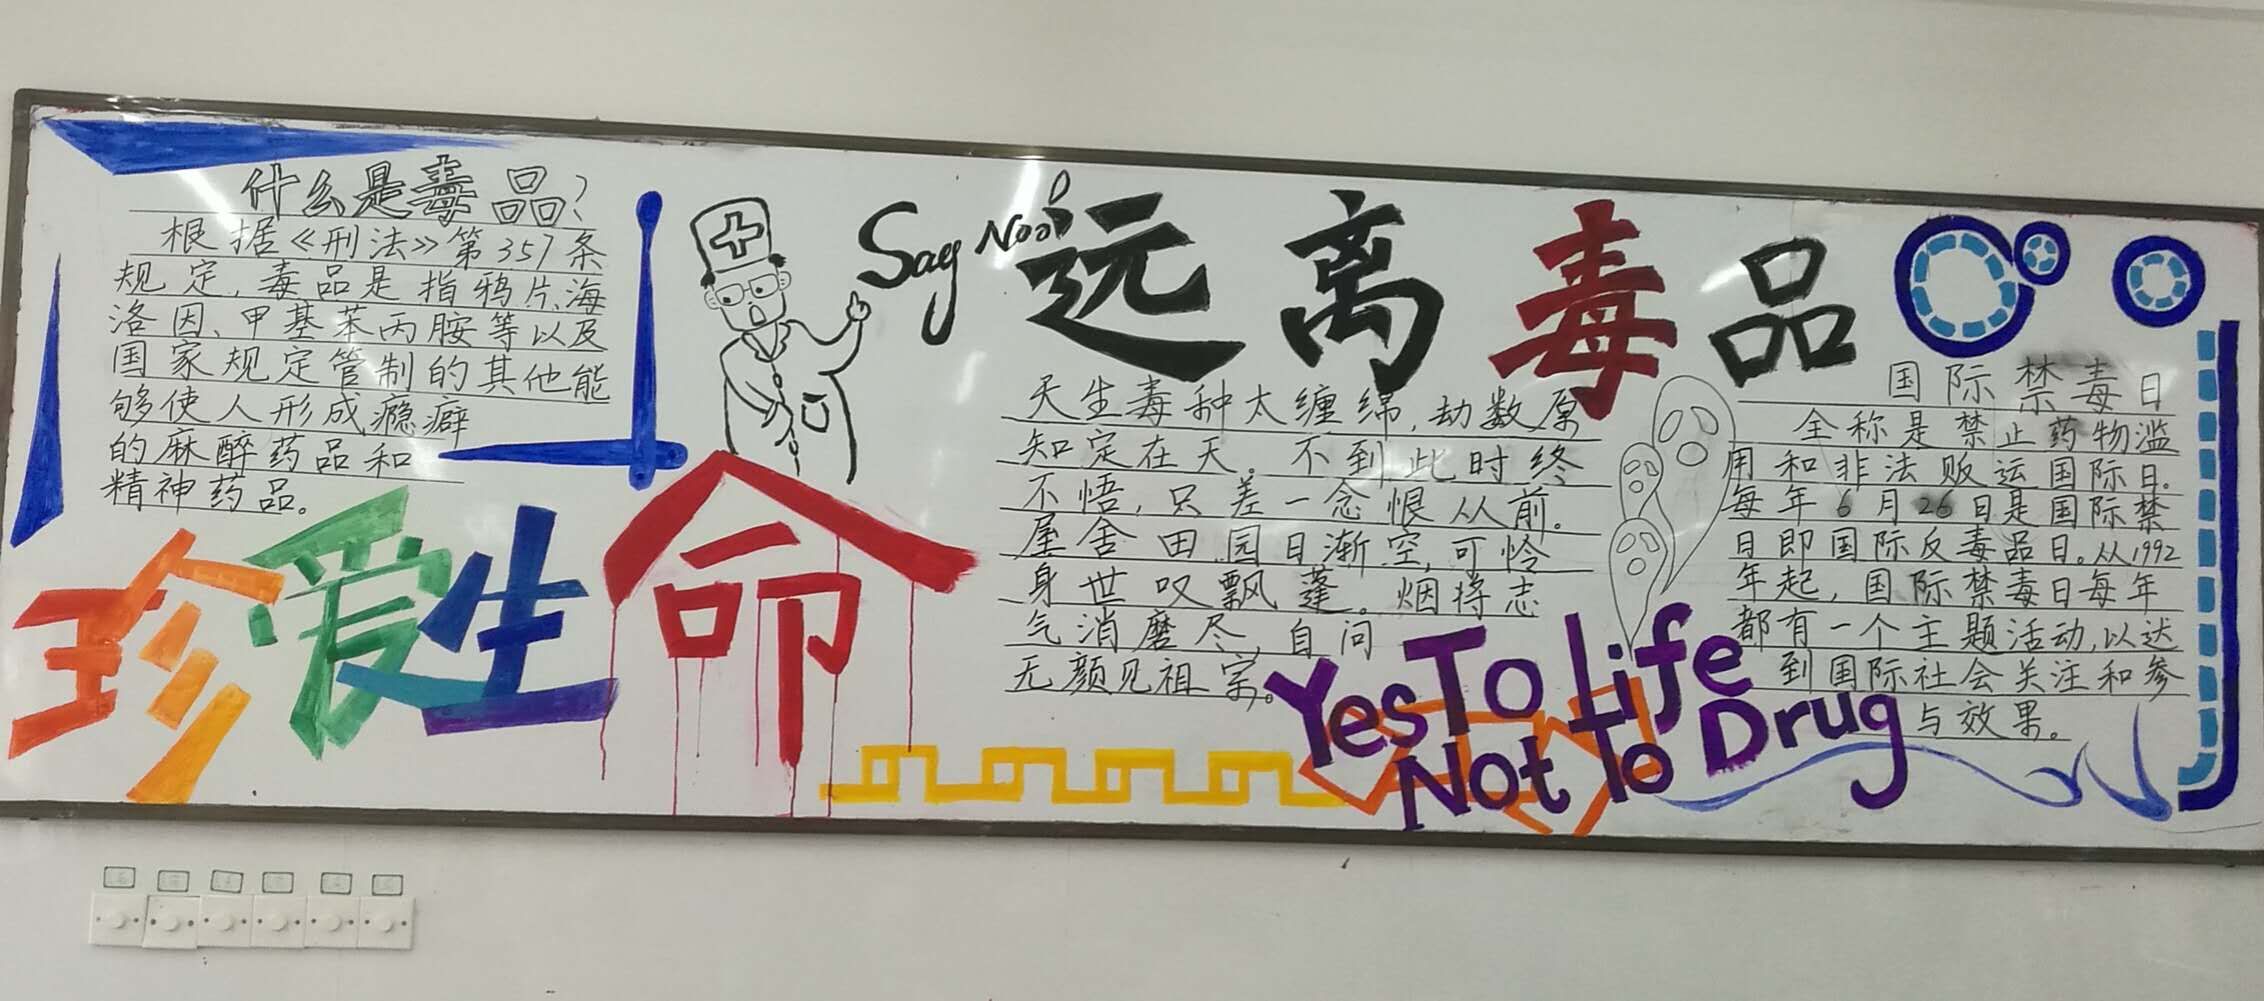 什么是毒品?
根据《刑法》第357条
规定,毒品是指鸦片、海
洛因、甲基苯丙胺等以及
国家规定管制的其他能
够使人形成瘾癖
的麻醉药品和
精神药品。
珍爱生命
Say Noo!
远离毒品
天生毒种太缠绵,劫数原
知定在天。不到此时终
不悟,只差一念恨从前。
屋舍田园日渐空,可怜
身世叹飘蓬。烟将志
气消磨尽,自问
无颜见祖宗。
Yes To Life
Not To Drug
国际禁毒日
全称是禁止药物滥
用和非法贩运国际日。
每年6月26日是国际禁
日即国际反毒品日。从1992
年起,国际禁毒日每年
都有一个主题活动,以达
到国际社会关注和参
与效果。